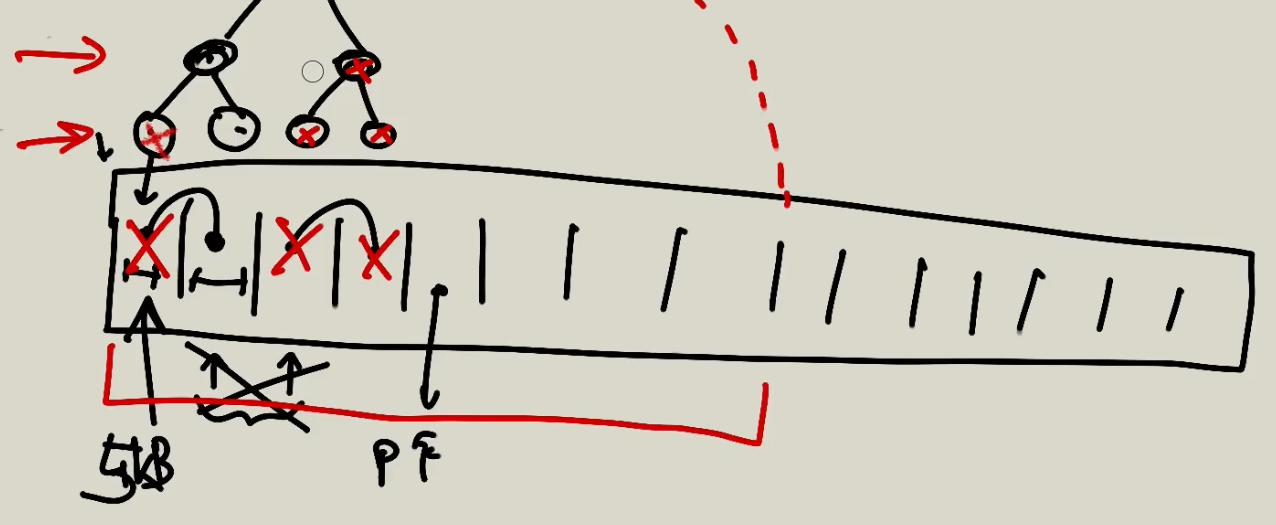 KB
PF